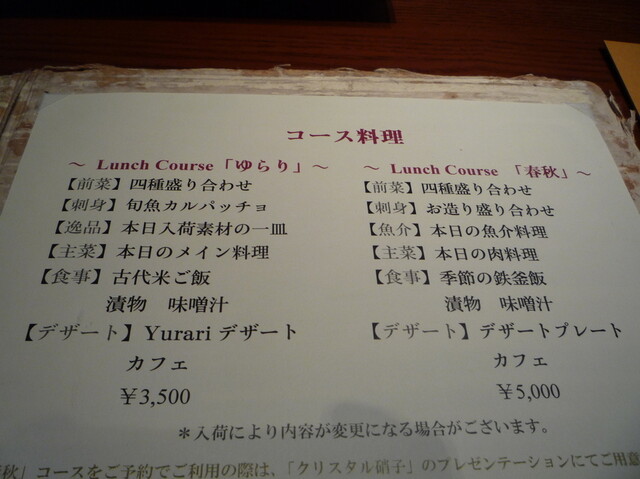 コース料理
～ Lunch Course「ゆらり」～
【前菜】四種盛り合わせ
【刺身】旬魚カルパッチョ
【逸品】本日入荷素材の一皿
【主菜】本日のメイン料理
【食事】古代米ご飯
漬物　味噌汁
【デザート】Yurari デザート
カフェ
￥3,500
～ Lunch Course 「春秋」～
【前菜】四種盛り合わせ
【刺身】お造り盛り合わせ
【魚介】本日の魚介料理
【主菜】本日の肉料理
【食事】季節の鉄釜飯
漬物　味噌汁
【デザート】デザートプレート
カフェ
￥5,000
＊入荷により内容が変更になる場合がございます。
秋」コースをご予約でご利用の際は、「クリスタル硝子」のプレゼンテーションにてご用意